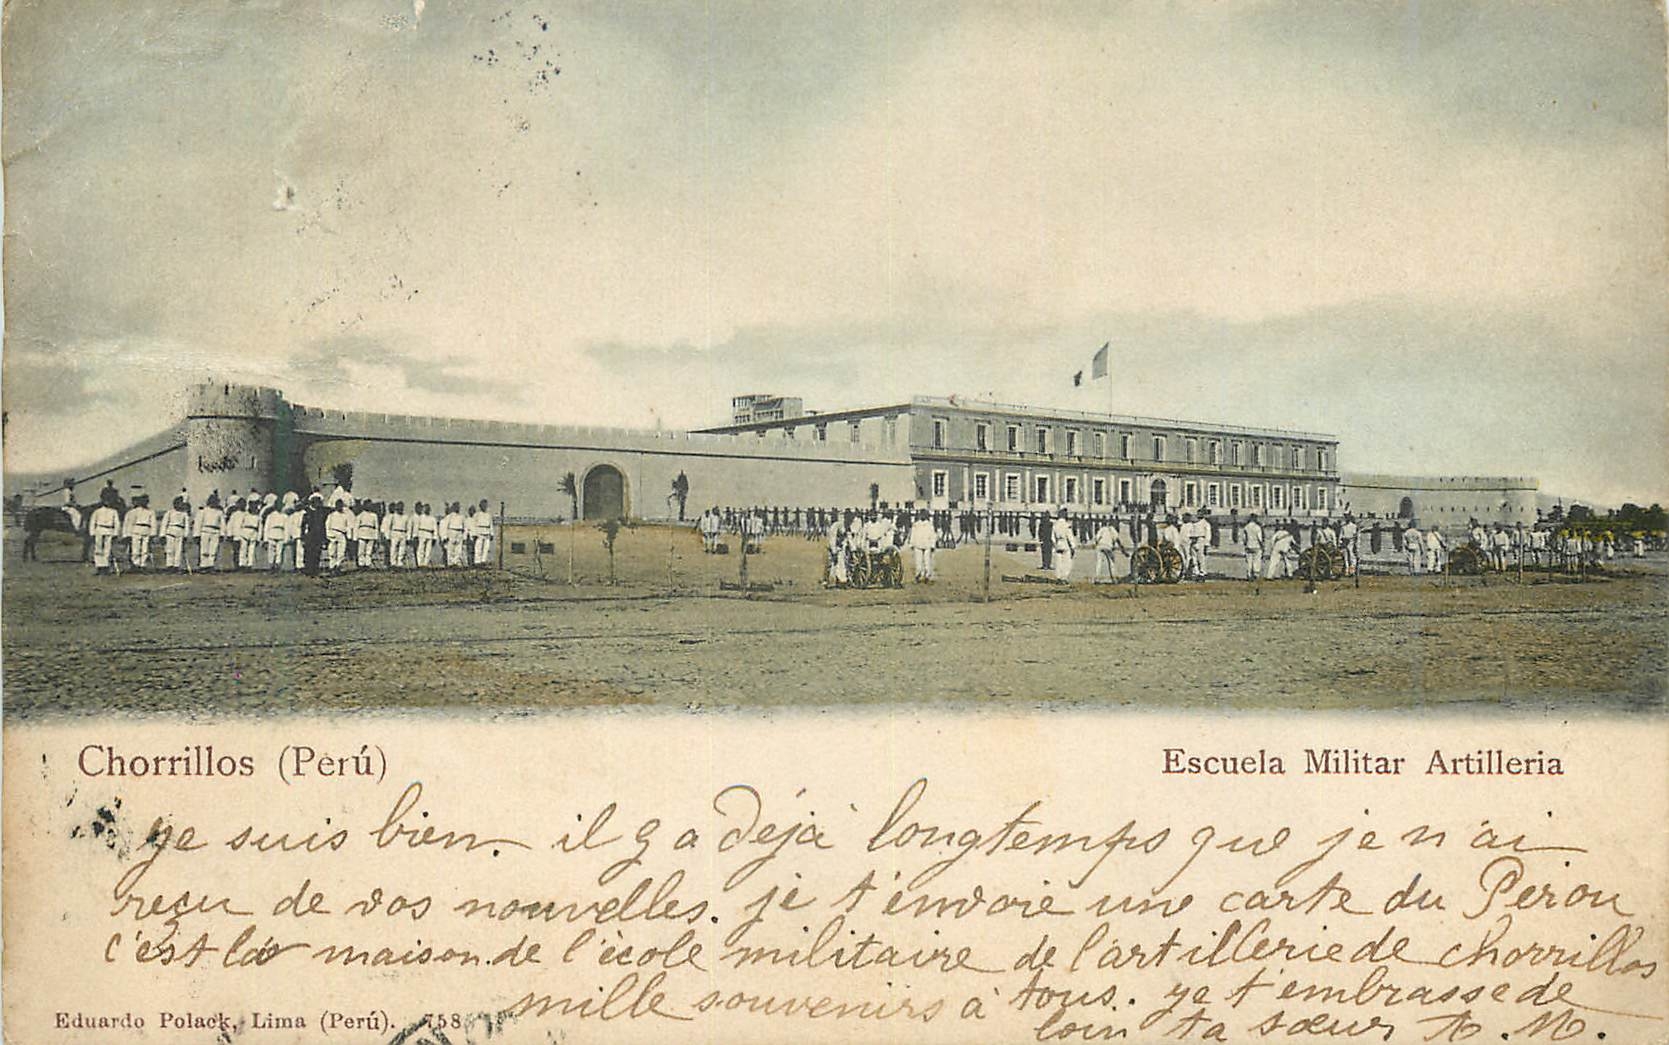 Chorrillos (Perú)
Escuela Militar Artilleria
ye suis bien. il y a déjà longtemps que je n'ai
reçu de vos nouvelles. je t'envoie une carte du Pérou
c'est la maison de l'école militaire de l'artillerie de chorrillos
mille souvenirs à tous. ye t'embrasse de
loin ta sœur
Eduardo Polack, Lima (Perú). 758